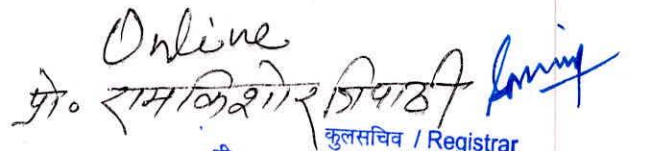 Online
प्रो॰ रामकिशोर त्रिपाठी
कुलसचिव / Registrar